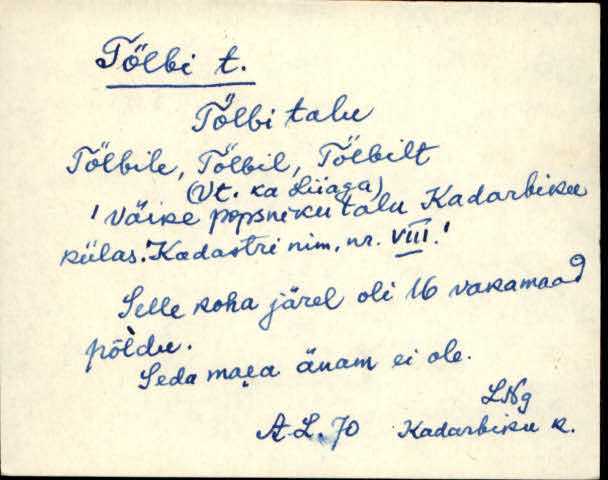 Tõlbi t.
Tõlbi talu
Tõlbile, Tõlbil, Tõlbilt
(Vt. ka Liiaga)
'Väike popsniku talu Kadarbiku
külas.'Kadastri nim, nr. VIII.'
Selle koha järel oli 16 vakamaad
põldu.
Seda maea änam ei ole.
LNg
A.L. 70 Kadarbiku k.